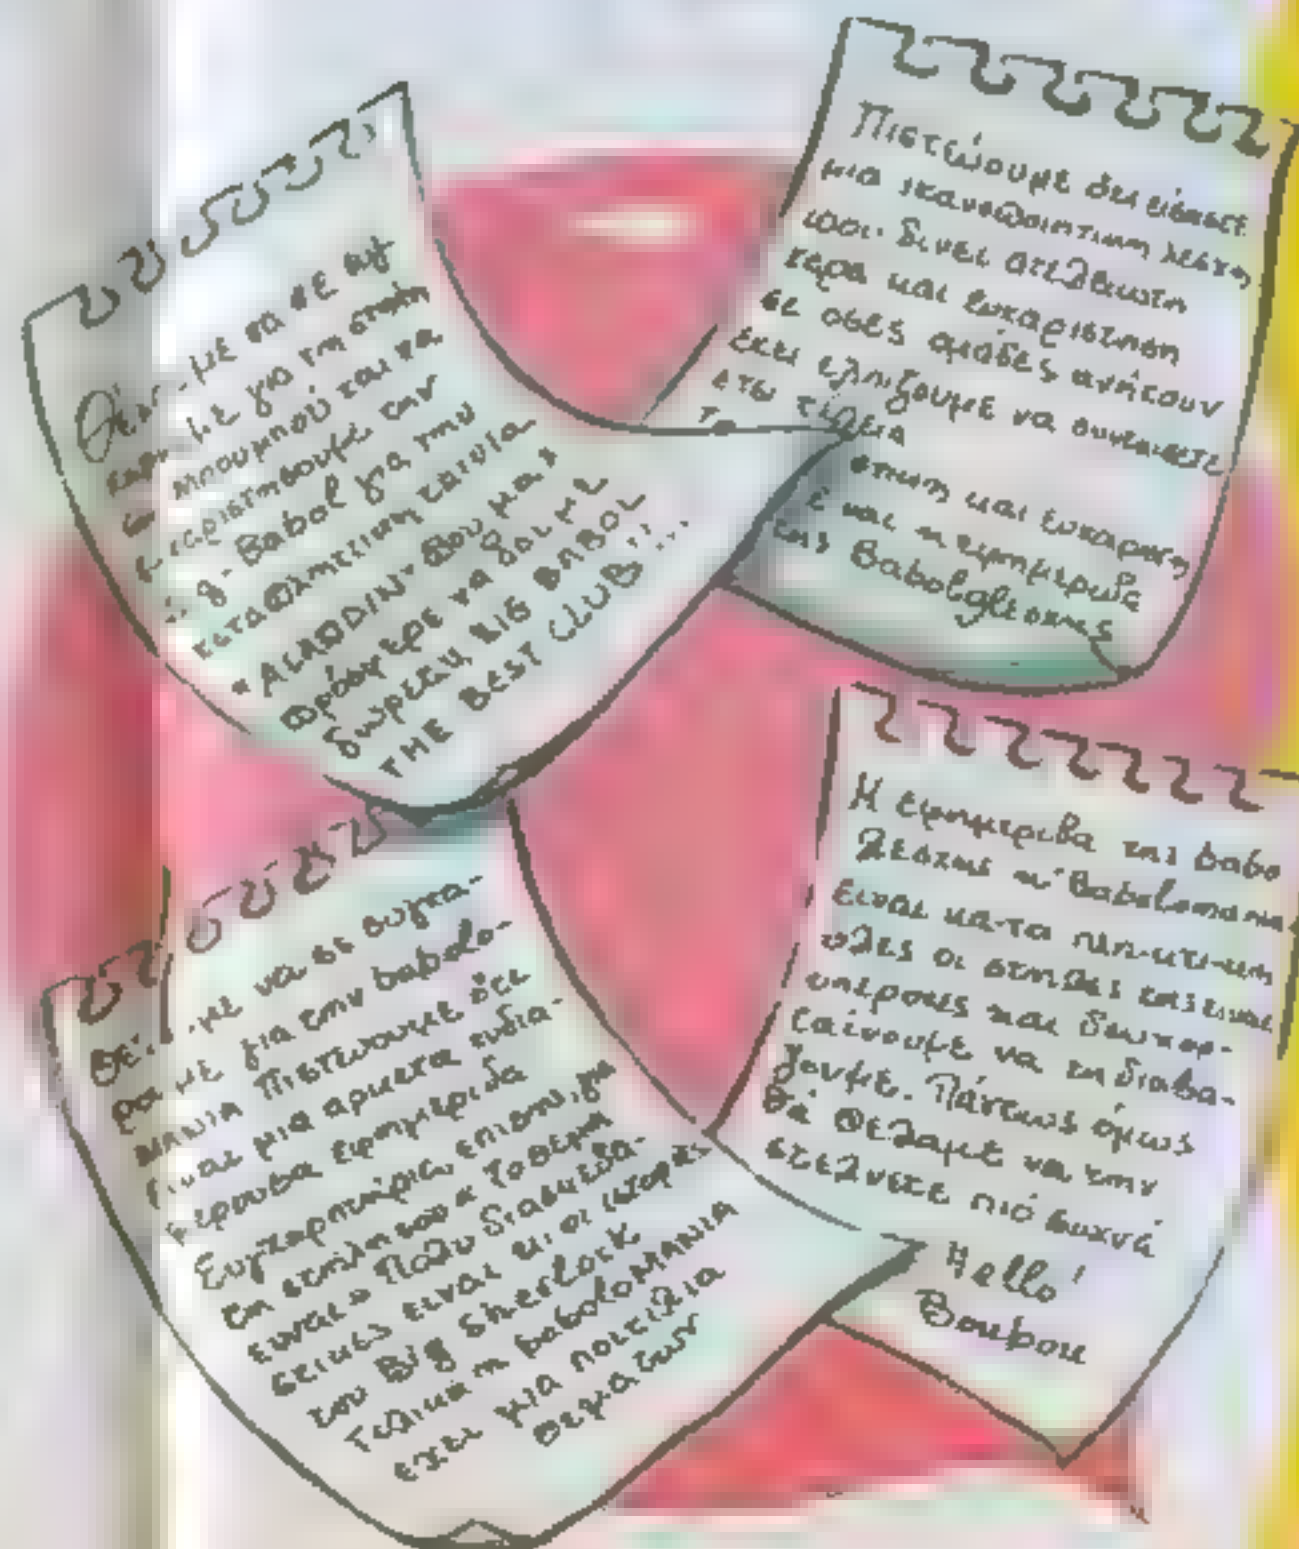 με να σε συγ
με για τη στήλη
μπουμπού και να
ευχαριστήσουμε την
Big-Babol για την
καταπληκτική ταινία
«ALADDIN» που μας
πρόσφερε να δούμε
δωρεάν, BIG BABOL
THE BEST CLUB!!...
Πιστεύουμε ότι είσαστε
μια ικανοποιητική λέσχη
που δίνει ατέλειωτη
χαρά και ευχαρίστηση
σε όσες ομάδες ανήκουν
εκεί ελπίζουμε να συνεχίσετε
έτσι τέλεια
επίσης και ευχάριστη
είναι η εφημερίδα
της Babol
με να σε συγχα-
ρούμε για την babolo-
MANIA πιστεύουμε ότι
είναι μια αρκετά ενδια-
φέρουσα εφημερίδα
Συγχαρητήρια, επίσης, για
τη στήλη σου το θέμα
είναι πολύ διασκεδα-
στικές είναι κι οι ιστορίες
του Big Sherlock
Τελικά η baboloMANIA
έχει μια ποικιλία
θεμάτων
Η εφημερίδα της babo
λέσχης η Babolomania
είναι κα-τα πλη-κτι-κη
όλες οι στήλες της είναι
υπέροχες και δεν χορ-
ταίνουμε να τη διαβά-
ζουμε. Πάντως όμως
θά θέλαμε να την
στέλνετε πιό συχνά
Hello!
Boubou